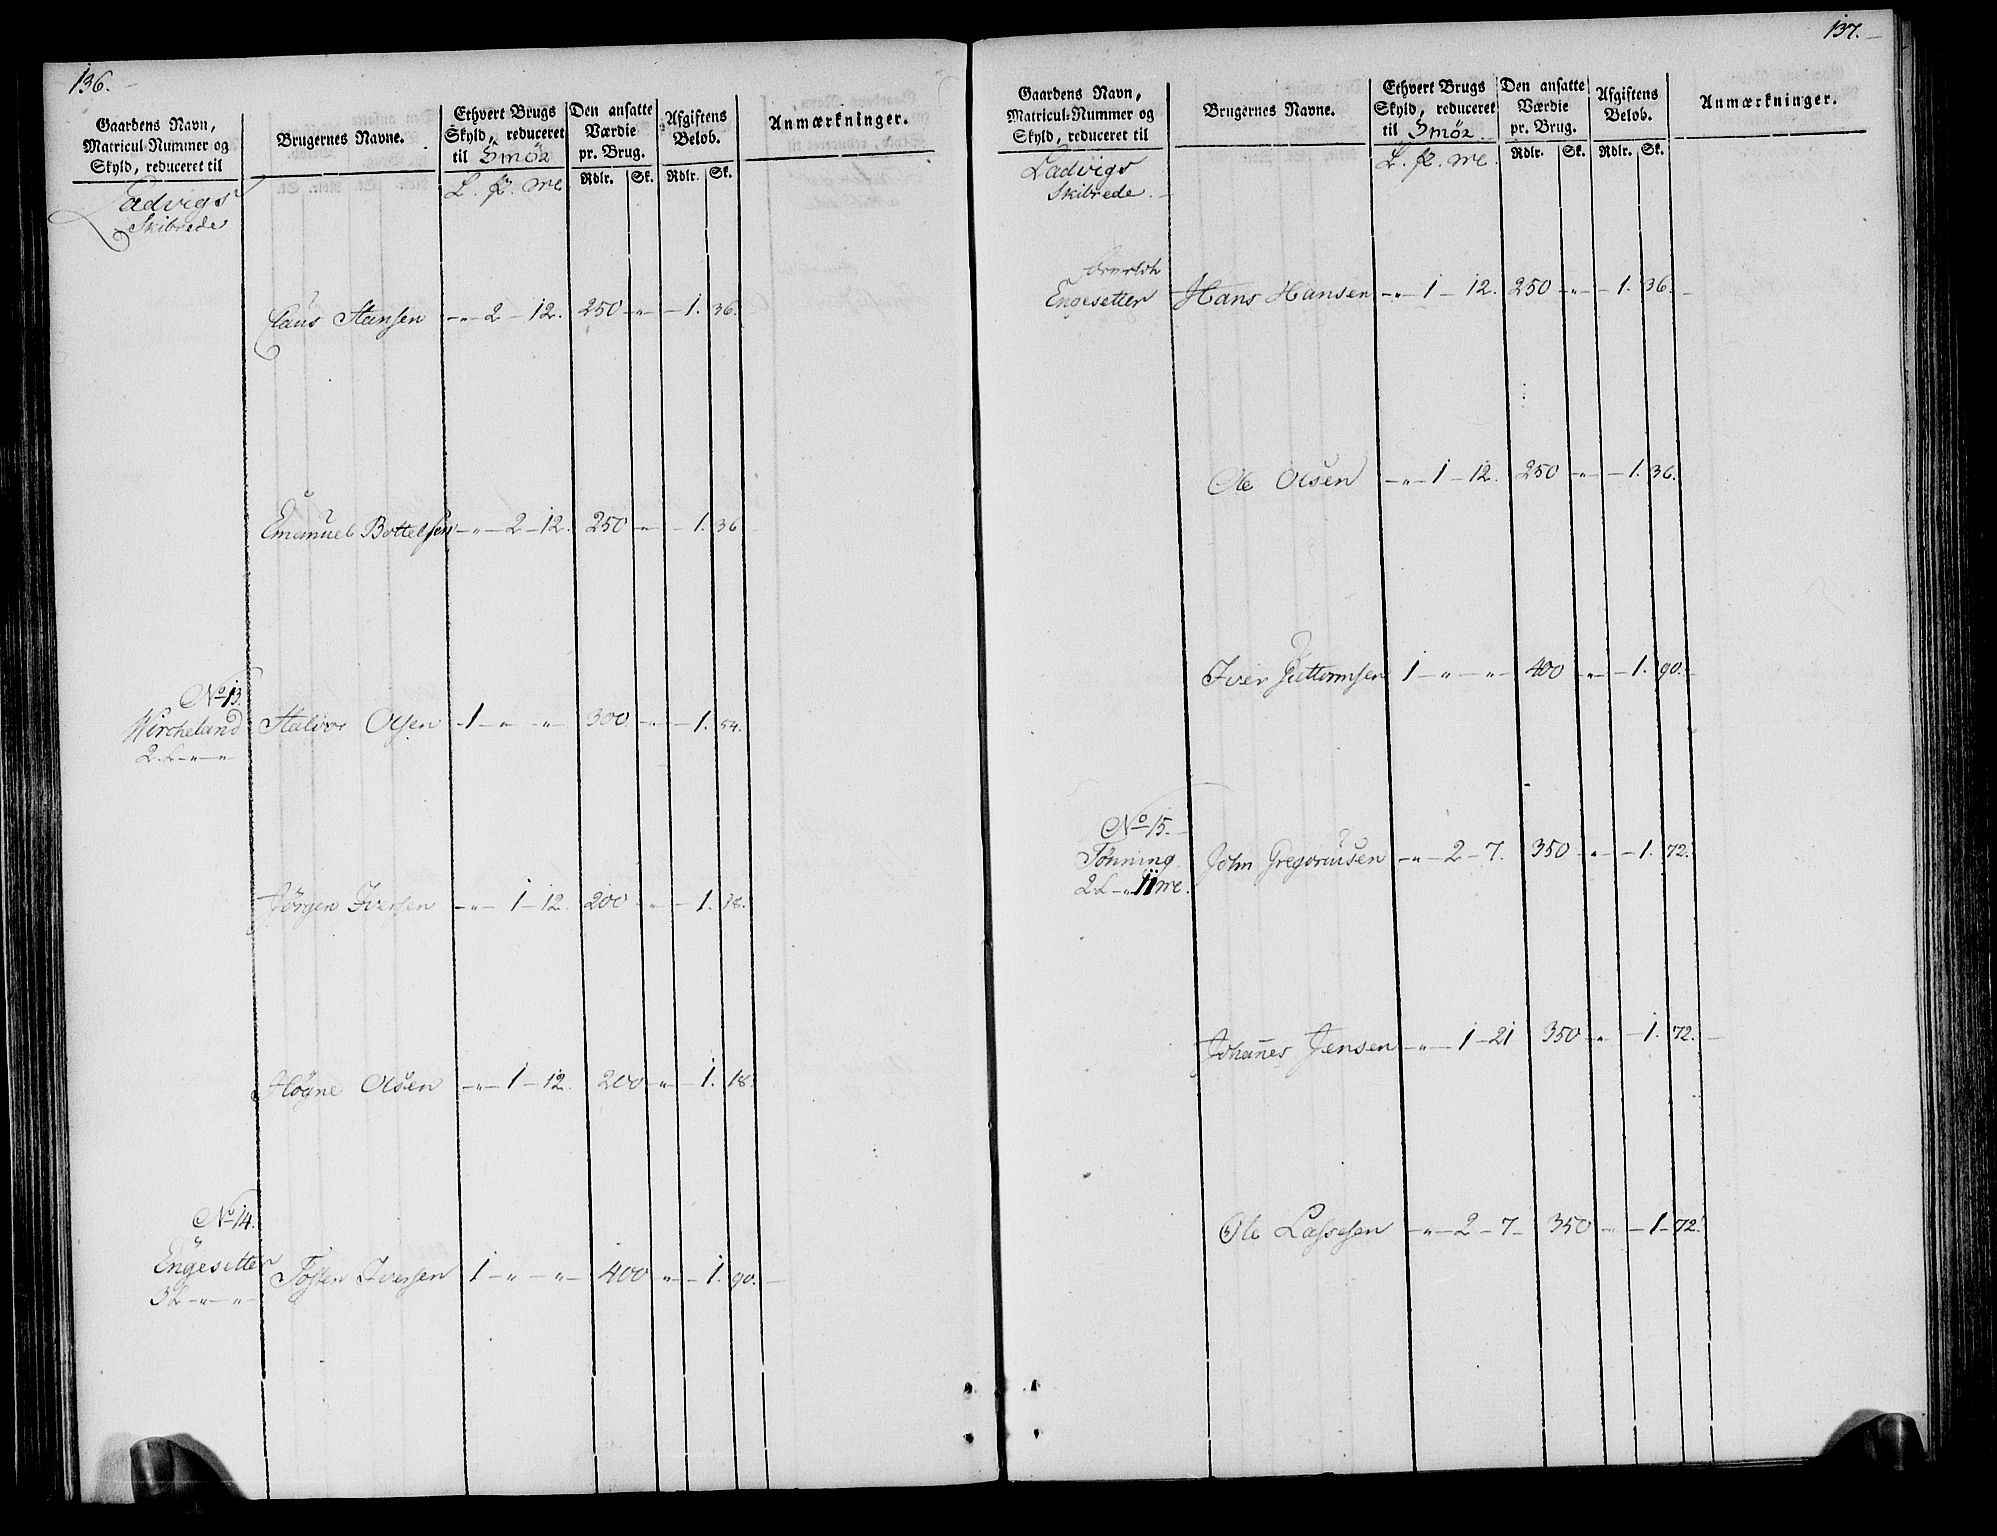 136.
Gaardens Navn,
Matricul-Nummer og
Skyld, reduceret til
Brugernes Navne.
Ethvert Brugs
Skyld, reduceret
til Smör
Den ansatte
Værdie
pr. Brug.
Afgiftens
Beløb.
Anmærkninger.
L. p. mk
Rdlr. Sk. Rdlr. Sk.
Ladvigs
Skibrede
Claus Hansen -"- 2 - 12. 250 -"- 1. 36.
Emanuel Bottelsen -"- 2 - 12. 250 -"- 1. 36
No 13.
Wircheland Halvor Olsen 1 - " - " 300 " - 1. 54.
2 L -"-"-
Jörgen Iversen -"- 1 - 12. 200 " - 1. 18.
Högne Olsen -"- 1 - 12. 200 " - 1. 18.
No 14.
Engesetter Tosten Iversen 1 - " - " - 400 " - 1. 90.
5 L -"-"-
137.
Gaardens Navn,
Matricul-Nummer og
Skyld, reduceret til
Brugernes Navne.
Ethvert Brugs
Skyld, reduceret
til Smör.
Den ansatte
Værdie
pr. Brug.
Afgiftens
Beløb.
Anmærkninger.
L. p. mk.
Rdlr. Sk. Rdlr. Sk.
Ladvigs
Skibrede.
Engesetter Hans Hansen -"- 1 - 12. 250 -"- 1. 36.
Ole Olsen -"- 1 - 12. 250 -"- 1. 36.
Iver Guttormsen 1 - " - " - 400 -"- 1. 90.
No 15.
Tönning John Gregoriusen -"- 2 - 7. 350 -"- 1. 72.
2 L -"- 11 mk.
Johannes Jensen -"- 1 - 21 350 -"- 1. 72.
Ole Lassesen -"- 2 - 7 - 350 " - 1 - 72.